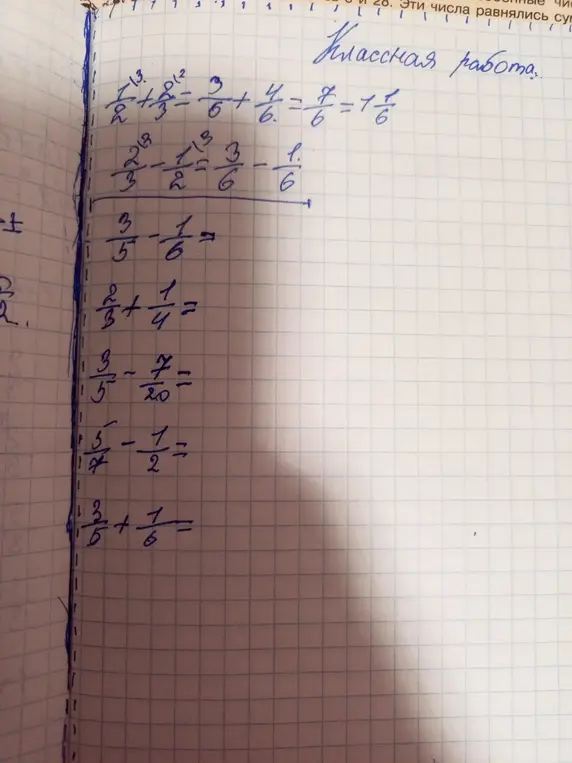 6 и 28. Эти числа равнялись
Классная работа.
1/2 (3 + 2/3 (2 = 3/6 + 4/6 = 7/6 = 1 1/6
2/3 (3 - 1/2 (3 = 3/6 - 1/6
3/5 - 1/6 =
2/3 + 1/4 =
3/5 - 7/20 =
5/7 - 1/2 =
3/5 + 1/6 =